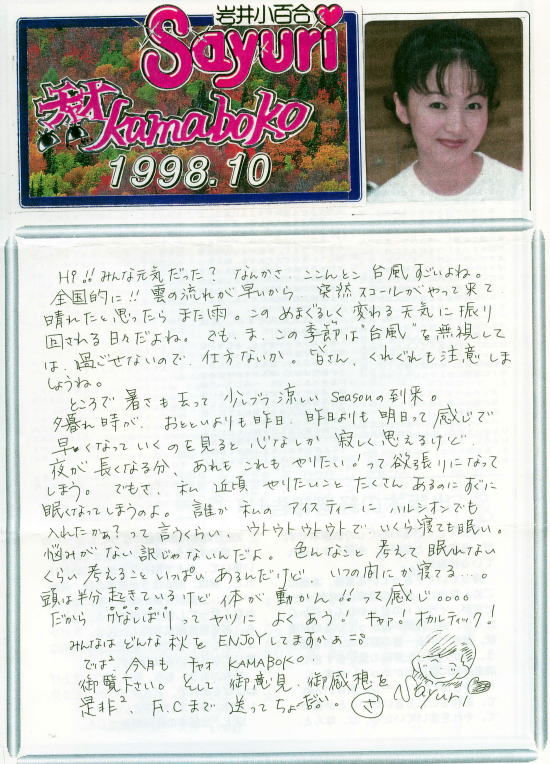 岩井小百合
Sayuri
チャオ
kamaboko
1998.10
Hi!! みんな元気だった? なんかさ、ここんとこ 台風 すごいよね。
全国的に!! 雲の流れが早いから 突然スコールがやって来て、
晴れたと思ったら また雨。このめまぐるしく 変わる 天気に 振り
回される日々だよね。でも、ま、この季節は"台風"を無視して
は、過ごせないので、仕方ないか。皆さん、くれぐれも注意しま
しょうね。
ところで 暑さも去って 少しづつ 涼しい Seasonの到来。
夕暮れ時が、おとといよりも昨日、昨日よりも明日って 感じで
早くなっていくのを見ると 心なしか 寂しく思えるけど、
夜が長くなる分、あれもこれもやりたい!って欲張りになって
しまう。 でもさ、私 近頃 やりたいこと たくさん あるのに すぐに
眠くなってしまうのよ。 誰か 私の アイスティーに ハルシオンでも
入れたかぁ?って言うくらい、ウトウトウトウトで、いくら寝ても眠い。
悩みがない訳じゃないんだよ。 色んなこと 考えて 眠れない
くらい 考えること いっぱい あるんだけど、いつの間にか寝てる…。
頭は半分起きているけど 体が動かん!!って感じ。。。。
だから かなしばりってヤツに よくあう! キャァ! オカルティック!
みんなは どんな 秋を ENJOYしてますかぁ
では² 今月も チャオ KAMABOKO.
御覧下さい。そして 御意見、御感想を
是非²、F.Cまで 送ってちょーだい。 さ
Sayuri